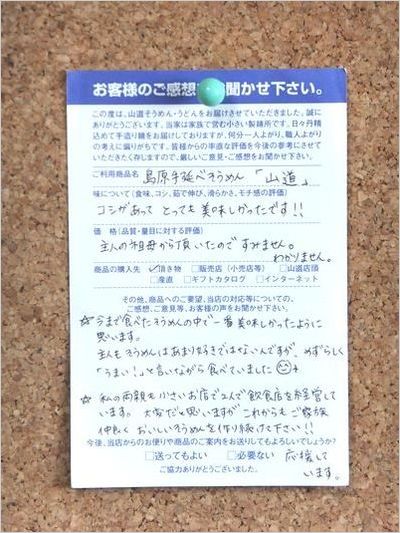 お客様のご感想 聞かせ下さい。
この度は、山道そうめん・うどんをお届けさせていただきました。誠に
ありがとうございます。当家は家族で営む小さい製麺所です。日々丹精
込めて手造り麺をお届けしておりますが、何分一人よがり、職人よがり
の考えに偏りがちです。皆様からの率直な評価を今後の参考にさせて
いただきたく存じますので、厳しいご意見・ご感想をお聞かせ下さい。
ご利用商品名 島原手延べそうめん「山道」
味について(食味、コシ、茹で伸び、滑らかさ、モチ感の評価)
コシがあって とっても美味しかったです!!
価 格(品質・量目に対する評価)
主人の祖母から頂いたので すみません。
わかりません。
商品の購入先 ☑頂き物 □販売店(小売店等) □山道店頭
□産直 □ギフトカタログ □インターネット
その他、商品へのご要望、当店の対応等についての、
ご感想、ご意見等、お客様の声をお聞かせ下さい。
☆今まで食べたそうめんの中で一番美味しかったように
思います。
主人もそうめんはあまり好きではないんですが、めずらしく
「うまい!」と言いながら食べていました
☆ 私の両親も小さいお店で2人で飲食店を経営して
います。大変だと思いますが これからも ご家族
仲良く おいしいそうめんを作り続けて下さい!!
今後、当店からのお便りや商品のご案内をお送りしてもよろしいでしょうか?
□送ってもよい □必要ない 応援して
います。
ご協力ありがとうございました。